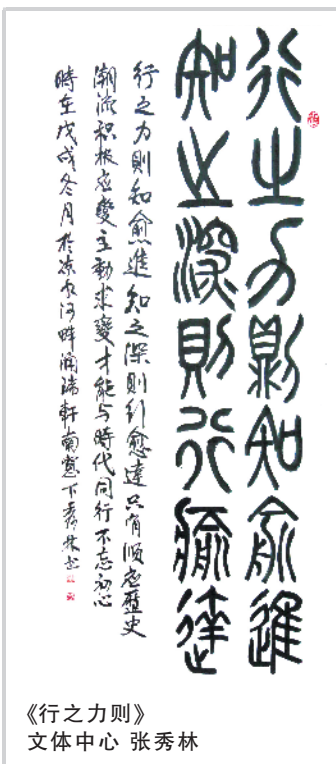 行之力則知愈進
知之深則行愈達
行之力則知愈進知之深則行愈達只有順应歷史
潮流积极应變主動求變才能与時代同行不忘初心
時在戊戌冬月於凉水河畔瑞軒南窗下秀林書
《行之力则》
文体中心 张秀林